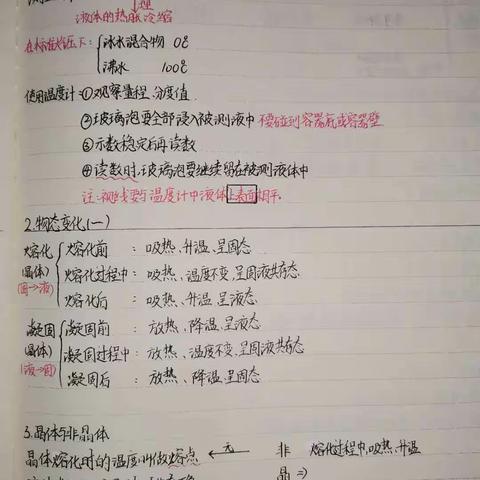 原理
液体的热胀冷缩
在标准大气压下: 冰水混合物 0℃
沸水 100℃
使用温度计: ①观察量程、分度值
②玻璃泡要全部浸入被测液中 不要碰到容器底或容器壁
③示数稳定后再读数
④读数时,玻璃泡要继续留在被测液体中
注:视线要与温度计中液体上表面相平。
2.物态变化(一)
熔化 熔化前 : 吸热、升温、呈固态
(晶体) 熔化过程中: 吸热、温度不变、呈固液共存态
(固→液) 熔化后 : 吸热、升温、呈液态
凝固 凝固前 : 放热、降温、呈液态
(晶体) 凝固过程中: 放热、温度不变、呈固液共存态
(液→固) 凝固后 : 放热、降温、呈固态
3.晶体与非晶体
晶体熔化时的温度叫做熔点 ← 无 非 熔化过程中,吸热、升温
晶 ⇒